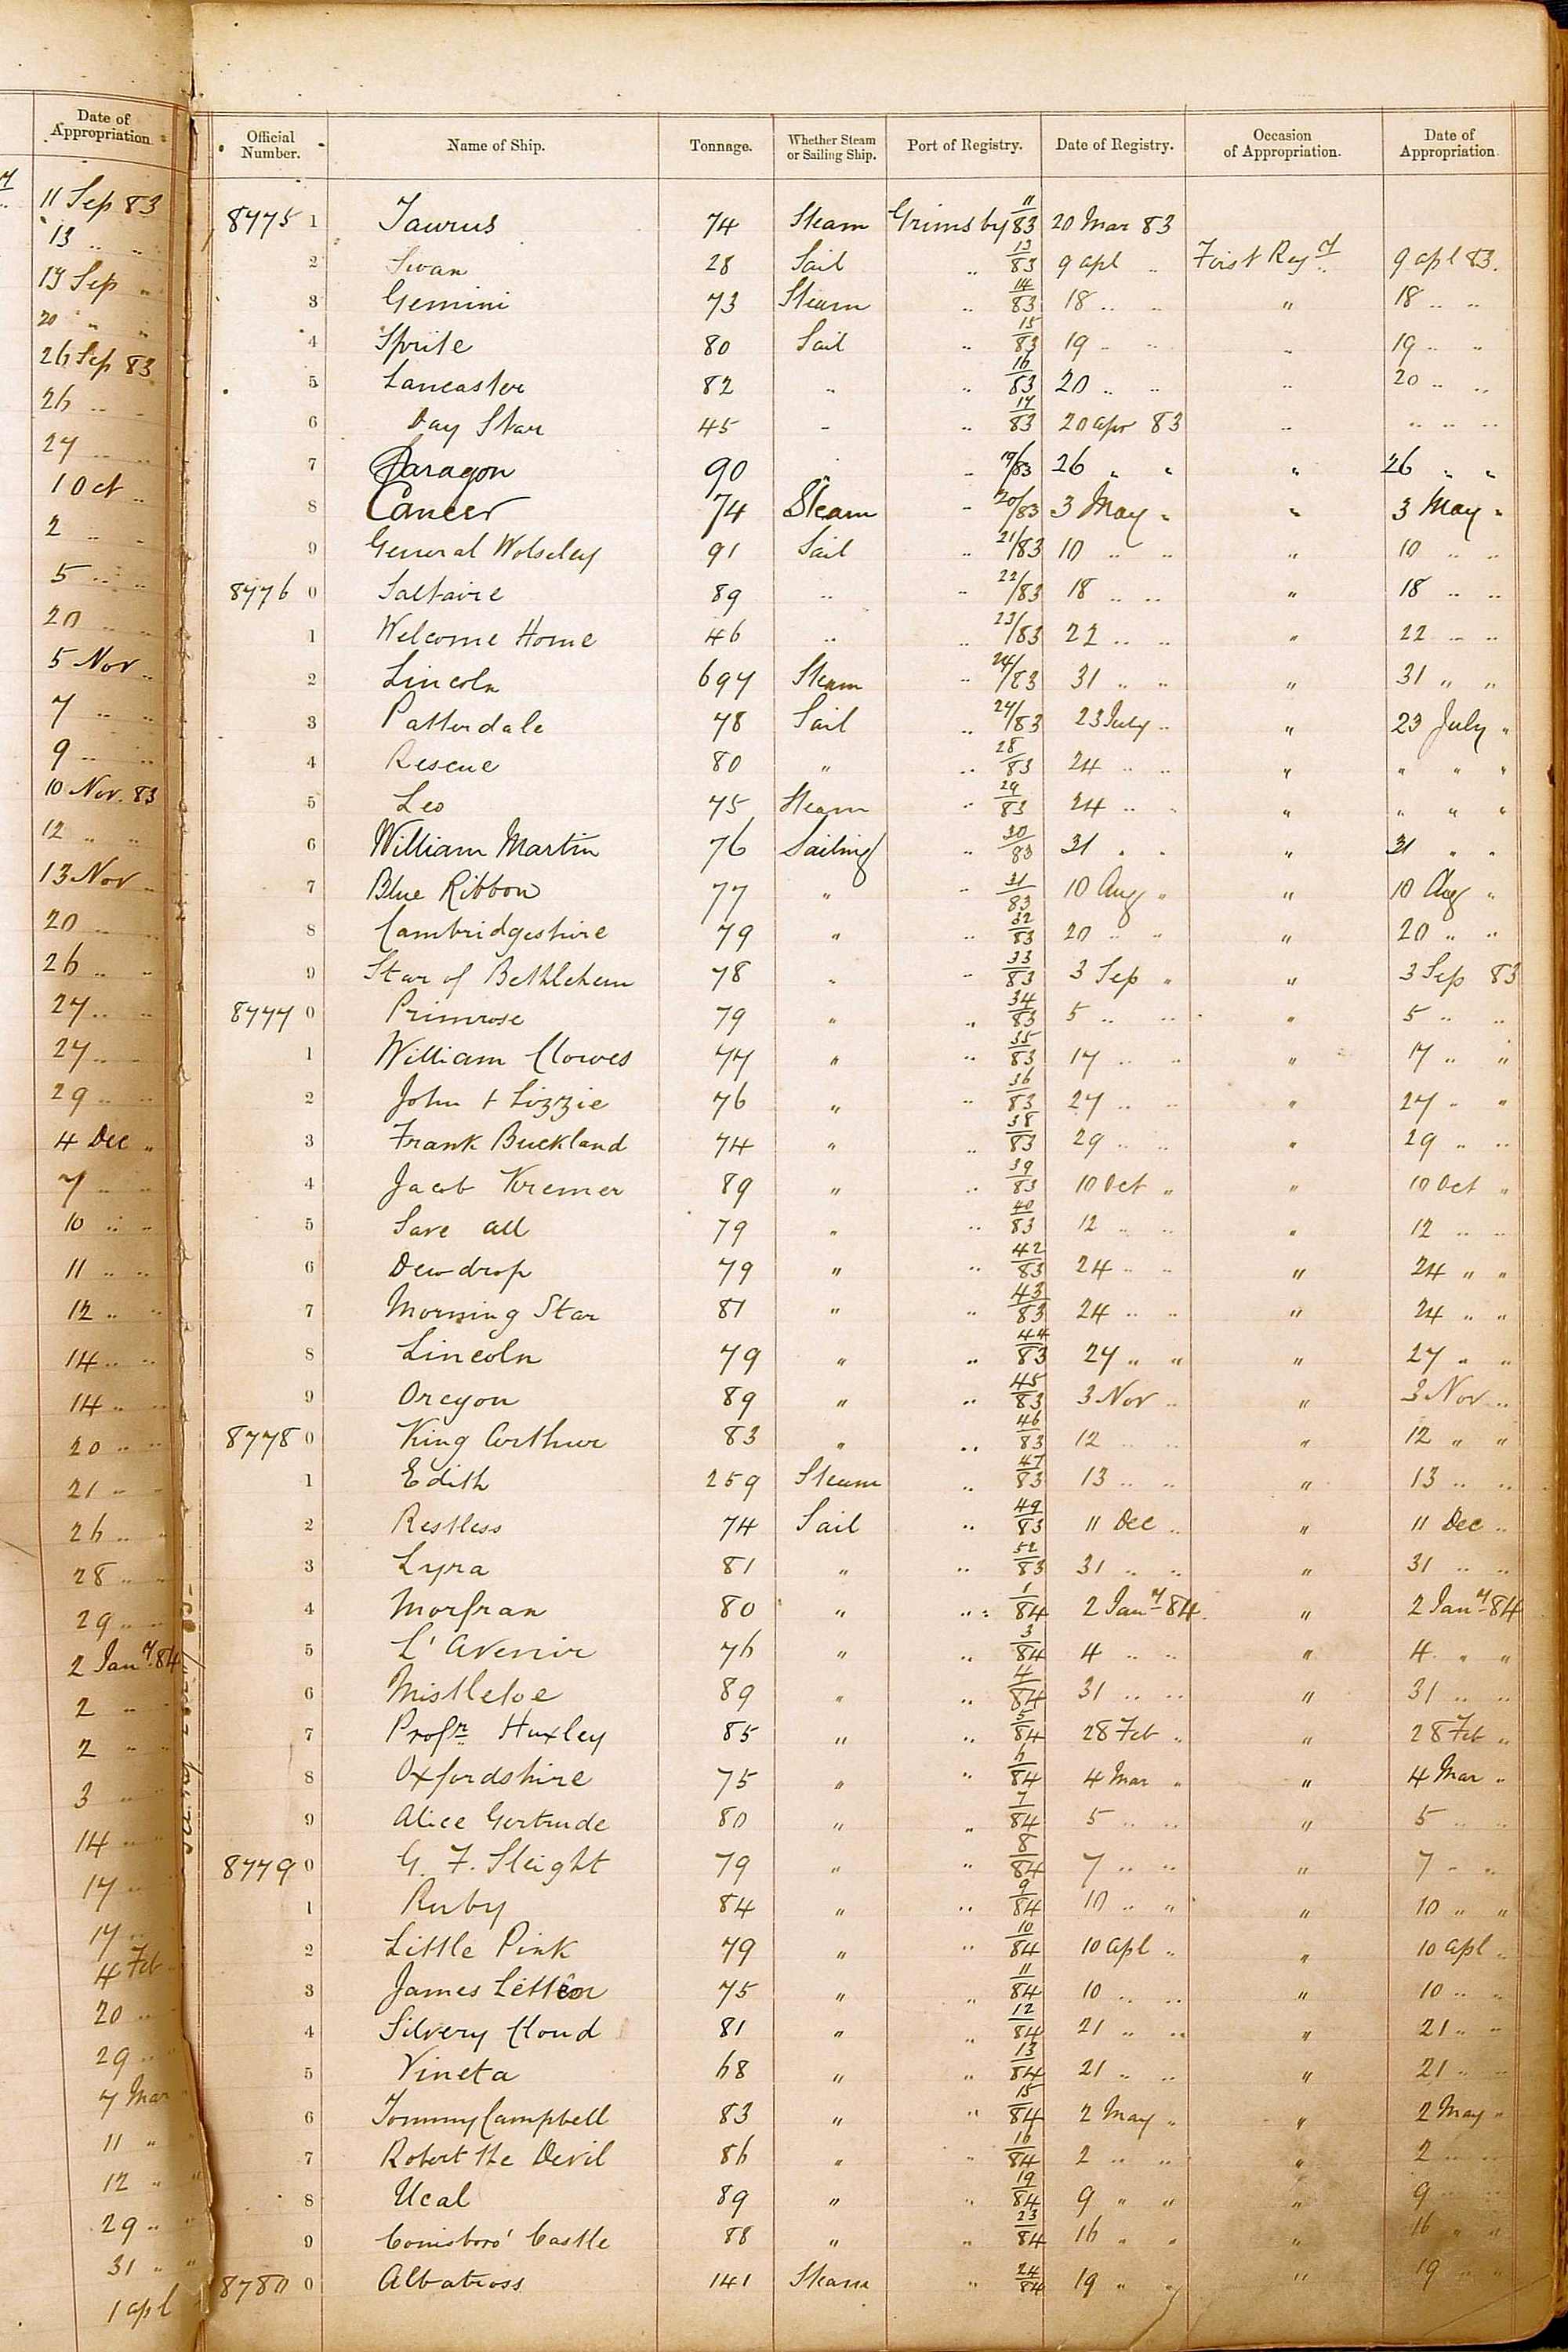 Date of Appropriation.
11 Sep 83
13 .. ..
19 Sep ..
20 .. ..
26 Sep 83
26 .. ..
27 .. ..
1 Oct ..
2 .. ..
5 .. ..
20 .. ..
5 Nov ..
7 .. ..
9 .. ..
10 Nov. 83
12 .. ..
13 Nov ..
20 .. ..
26 .. ..
27 .. ..
27 .. ..
29 .. ..
4 Dec ..
7 .. ..
10 .. ..
11 .. ..
12 .. ..
14 .. ..
14 .. ..
20 .. ..
21 .. ..
26 .. ..
28 .. ..
29 .. ..
2 Jany 84
2 .. ..
2 .. ..
3 .. ..
14 .. ..
17 .. ..
17 ..
4 Feb ..
20 ..
29 ..
7 Mar
11 "
12 " "
29 .. "
31 .. "
1 apl
Official Number. Name of Ship. Tonnage. Whether Steam or Sailing Ship. Port of Registry. Date of Registry. Occasion of Appropriation. Date of Appropriation.
8775 1 Taurus 74 Steam Grimsby 11/83 20 Mar 83
2 Swan 28 Sail .. 13/83 9 apl .. First Regy 9 apl 83.
3 Gemini 73 Steam .. 14/83 18 .. .. " 18 .. ..
4 Sprite 80 Sail .. 15/83 19 .. .. .. 19 .. ..
5 Lancaster 82 .. .. 16/83 20 .. .. .. 20 .. ..
6 Day Star 45 .. .. 17/83 20 apr 83 .. .. .. ..
7 Paragon 90 .. .. 19/83 26 " " " 26 " "
8 Cancer 74 Steam .. 20/83 3 May " " 3 May "
9 General Wolseley 91 Sail .. 21/83 10 .. .. " 10 .. ..
8776 0 Saltaire 89 .. .. 22/83 18 .. .. " 18 .. ..
1 Welcome Home 46 .. .. 23/83 22 .. .. " 22 .. ..
2 Lincoln 697 Steam .. 24/83 31 .. .. " 31 " "
3 Patterdale 78 Sail .. 27/83 23 July .. " 23 July "
4 Rescue 80 " .. 28/83 24 .. .. " " " "
5 Leo 75 Steam .. 29/83 24 .. .. " " " "
6 William Martin 76 Sailing .. 30/83 31 " " " 31 " "
7 Blue Ribbon 77 " .. 31/83 10 Aug " " 10 Aug "
8 Cambridgeshire 79 " .. 32/83 20 .. .. " 20 .. ..
9 Star of Bethlehem 78 " .. 33/83 3 Sep " " 3 Sep 83
8777 0 Primrose 79 " .. 34/83 5 .. .. " 5 .. ..
1 William Clowes 77 " .. 35/83 17 .. .. " 17 .. ..
2 John & Lizzie 76 " .. 36/83 27 .. .. " 27 .. "
3 Frank Buckland 74 " .. 38/83 29 .. .. " 29 .. ..
4 Jacob Kremer 89 " .. 39/83 10 Oct " " 10 Oct "
5 Save all 79 " .. 40/83 12 .. .. " 12 .. ..
6 Dewdrop 79 " .. 42/83 24 .. .. " 24 " "
7 Morning Star 81 " .. 43/83 24 .. .. " 24 .. "
8 Lincoln 79 " .. 44/83 27 " " " 27 " "
9 Oregon 89 " .. 45/83 3 Nov .. " 3 Nov ..
8778 0 King Arthur 83 " .. 46/83 12 .. .. " 12 " "
1 Edith 259 Steam .. 47/83 13 .. .. " 13 .. ..
2 Restless 74 Sail .. 49/83 11 Dec .. " 11 Dec ..
3 Lyra 81 " .. 52/83 31 .. .. " 31 .. ..
4 Morfran 80 " .. 1/84 2 Jany 84 " 2 Jany 84
5 L'Avenir 76 " .. 3/84 4 .. .. " 4 " "
6 Mistletoe 89 " .. 4/84 31 .. .. " 31 .. ..
7 Profr Huxley 85 " .. 5/84 28 Feb " " 28 Feb "
8 Oxfordshire 75 " .. 6/84 4 Mar " " 4 Mar ..
9 Alice Gertrude 80 " .. 7/84 5 .. .. " 5 .. ..
8779 0 G. F. Sleight 79 " .. 8/84 7 .. .. " 7 .. ..
1 Ruby 84 " .. 9/84 10 .. " " 10 " "
2 Little Pink 79 " .. 10/84 10 apl .. " 10 apl ..
3 James 75 " .. 11/84 10 .. .. " 10 .. ..
4 Silvery Cloud 81 " .. 12/84 21 .. .. " 21 .. ..
5 Vineta 68 " .. 13/84 21 .. .. " 21 .. ..
6 Tommy Campbell 83 " .. 15/84 2 May .. " 2 May "
7 Robert the Devil 86 " .. 16/84 2 .. .. " 2 .. ..
8 Ucal 89 " .. 19/84 9 " " " 9 .. ..
9 Conisboro' Castle 88 " .. 23/84 16 " " " 16 " "
8780 0 Albatross 141 Steam .. 24/84 19 " " " 19 " "